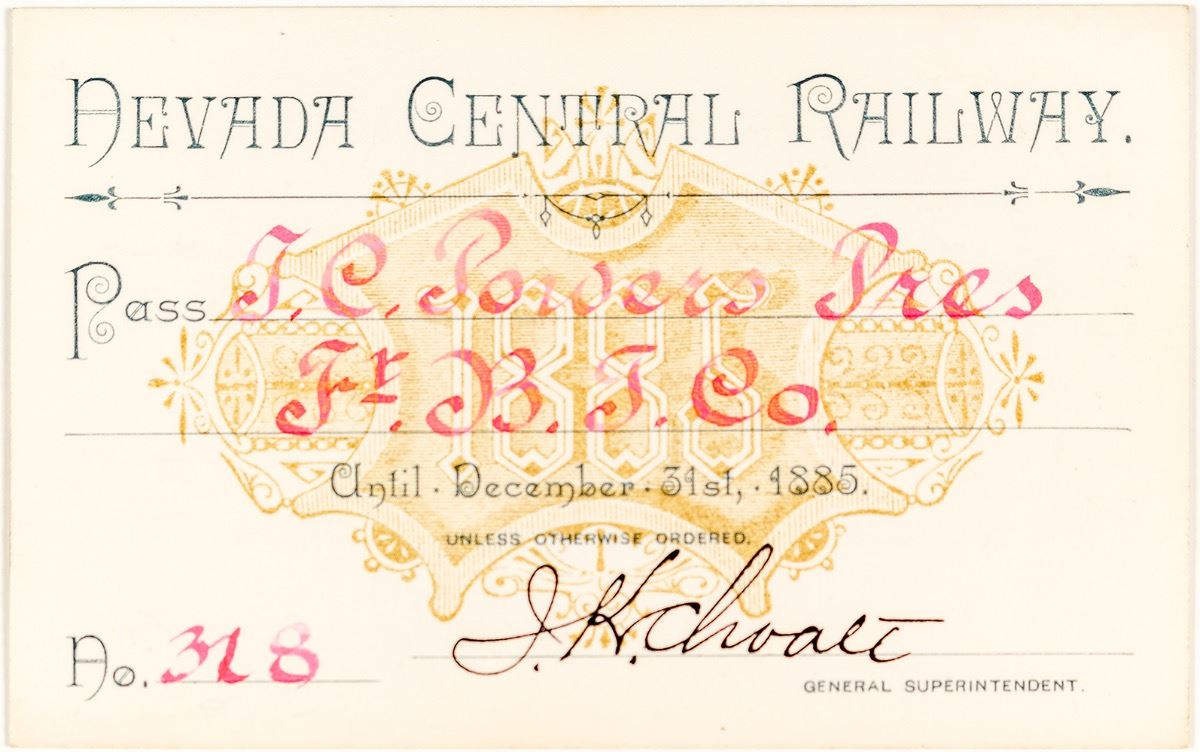 NEVADA CENTRAL RAILWAY.
Pass T. C. Powers Pres
Ft. B. T. Co.
1885
Until · December · 31st, · 1885.
UNLESS OTHERWISE ORDERED.
No. 318
GENERAL SUPERINTENDENT.